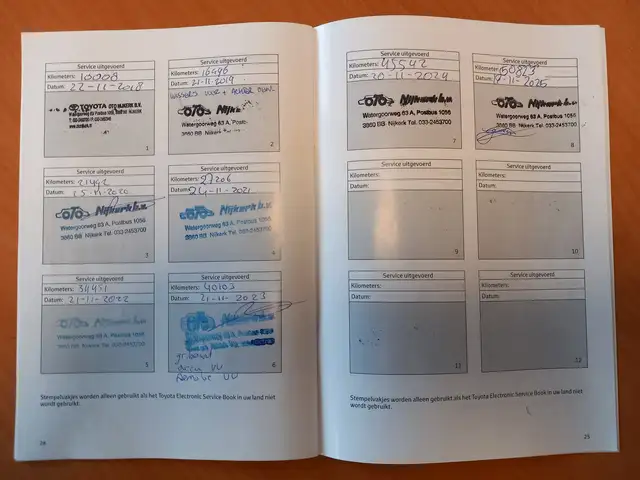 Service uitgevoerd
Kilometers: 10008
Datum: 22-11-2018
TOYOTA OTO NIJKERK B.V.
1
Service uitgevoerd
Kilometers: 16496
Datum: 21-11-2019
OTO Nijkerk
Watergoorweg 63 A, Postb
3860 BB Nijkerk
2
Service uitgevoerd
Kilometers: 21492
Datum: 25-11-2020
OTO Nijkerk b.v.
Watergoorweg 63 A, Postbus 1056
3860 BB Nijkerk Tel. 033-2453700
3
Service uitgevoerd
Kilometers: 27206
Datum: 24-11-2021
OTO Nijkerk b.v.
Watergoorweg 63 A, Postbus 1056
3860 BB Nijkerk Tel. 033-2453700
4
Service uitgevoerd
Kilometers: 34451
Datum: 21-11-2022
OTO Nijkerk b.v.
Watergoorweg 63 A, Postbus 1056
3860 BB Nijkerk Tel. 033-2453700
5
Service uitgevoerd
Kilometers: 40103
Datum: 21-11-2023
6
gr beurt
accu VV
Stempelvakjes worden alleen gebruikt als het Toyota Electronic Service Book in uw land niet
wordt gebruikt.
Service uitgevoerd
Kilometers: 45542
Datum: 20-11-2024
OTO Nijkerk b.v.
Watergoorweg 63 A, Postbus 1056
3860 BB Nijkerk Tel. 033-2453700
7
Service uitgevoerd
Kilometers: 50823
Datum: -11-2025
OTO Nijkerk b.v.
Watergoorweg 63 A, Postbus 1056
3860 BB Nijkerk Tel. 033-2453700
8
Service uitgevoerd
Kilometers:
Datum:
9
Service uitgevoerd
Kilometers:
Datum:
10
Service uitgevoerd
Kilometers:
Datum:
11
Service uitgevoerd
Kilometers:
Datum:
12
Stempelvakjes worden alleen gebruikt als het Toyota Electronic Service Book in uw land niet
wordt gebruikt.
25